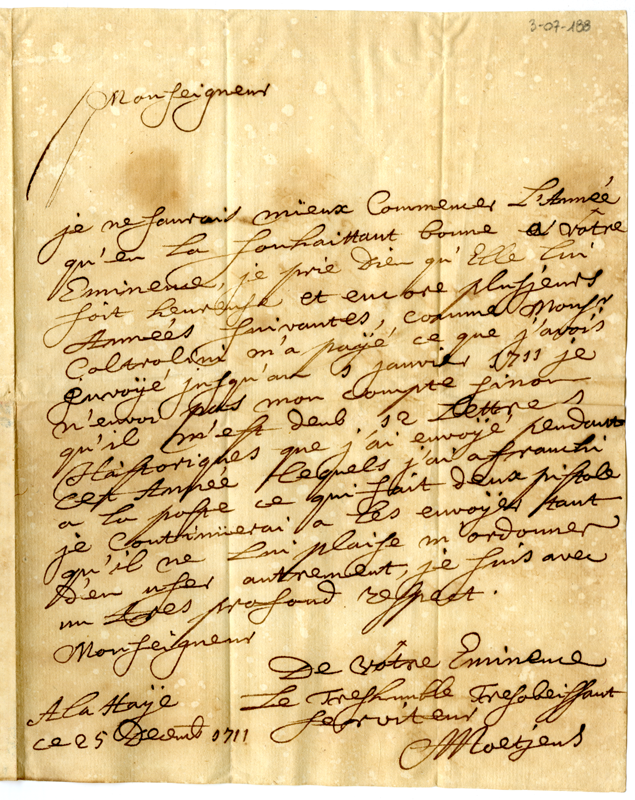 3-07-188
Monseigneur
je ne saurais mieux Commencer L'Année
qu'en La souhaittant bonne a vôtre
Eminence, je prie Dieu qu'Elle lui
soit heureuse et encore plusieurs
Années suivantes, comme Monsr
Coltrolini m'a payé ce que j'avois
Envoÿé jusqu'au 1 janvier 1711 je
n'envoi pas mon compte sinon
qu'il m'est deub 12 Lettres
Historiques que j'ai envoÿé pendant
cest Année Lequels j'ai afranchi
a la poste ce qui fait deux pistole
je Continüerai a Les envoÿer tant
qu'il ne Lui plaise m'ordonner
D'en user autrement, je suis avec
un tres profond respect.
Monseigneur
De vôtre Eminence
Le Treshumble Tresobeissant
Serviteur
A La Haÿe
ce 25 Decemb 1711
Moetjens